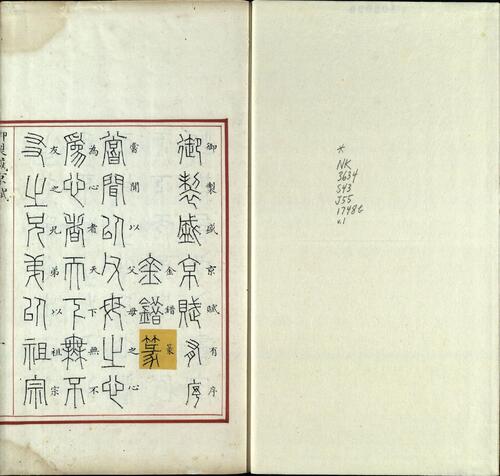 *
NK
3634
S43
J55
1748c
v.1
御製盛京賦有序
御製盛京賦有序
金錯篆
金錯篆
嘗聞以父母之心
嘗聞以父母之心
為心者天下無不
為心者天下無不
友之兄弟以祖宗
友之兄弟以祖宗
御製盛京賦